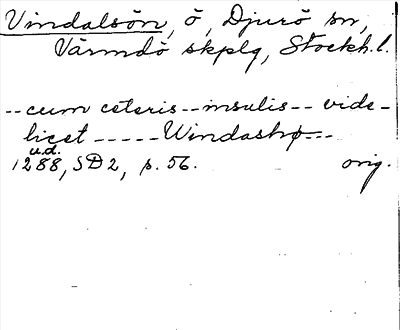 Vindalsön, ö, Djurö sn,
Värmdö skplg, Stockh.l.
-- cum ceteris -- insulis -- vide-
licet ----- Windashø ---
u.d.
1288, SD2, p. 56. orig.